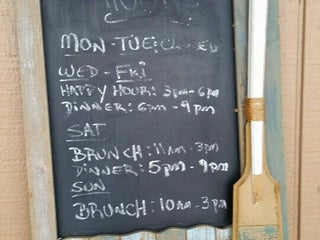 HOURS
MON - TUE: CLOSED
WED - FRI
HAPPY HOUR: 3pm - 6pm
DINNER: 6pm - 9pm
SAT
BRUNCH: 11am - 3pm
DINNER: 5pm - 9pm
SUN
BRUNCH: 10am - 3pm